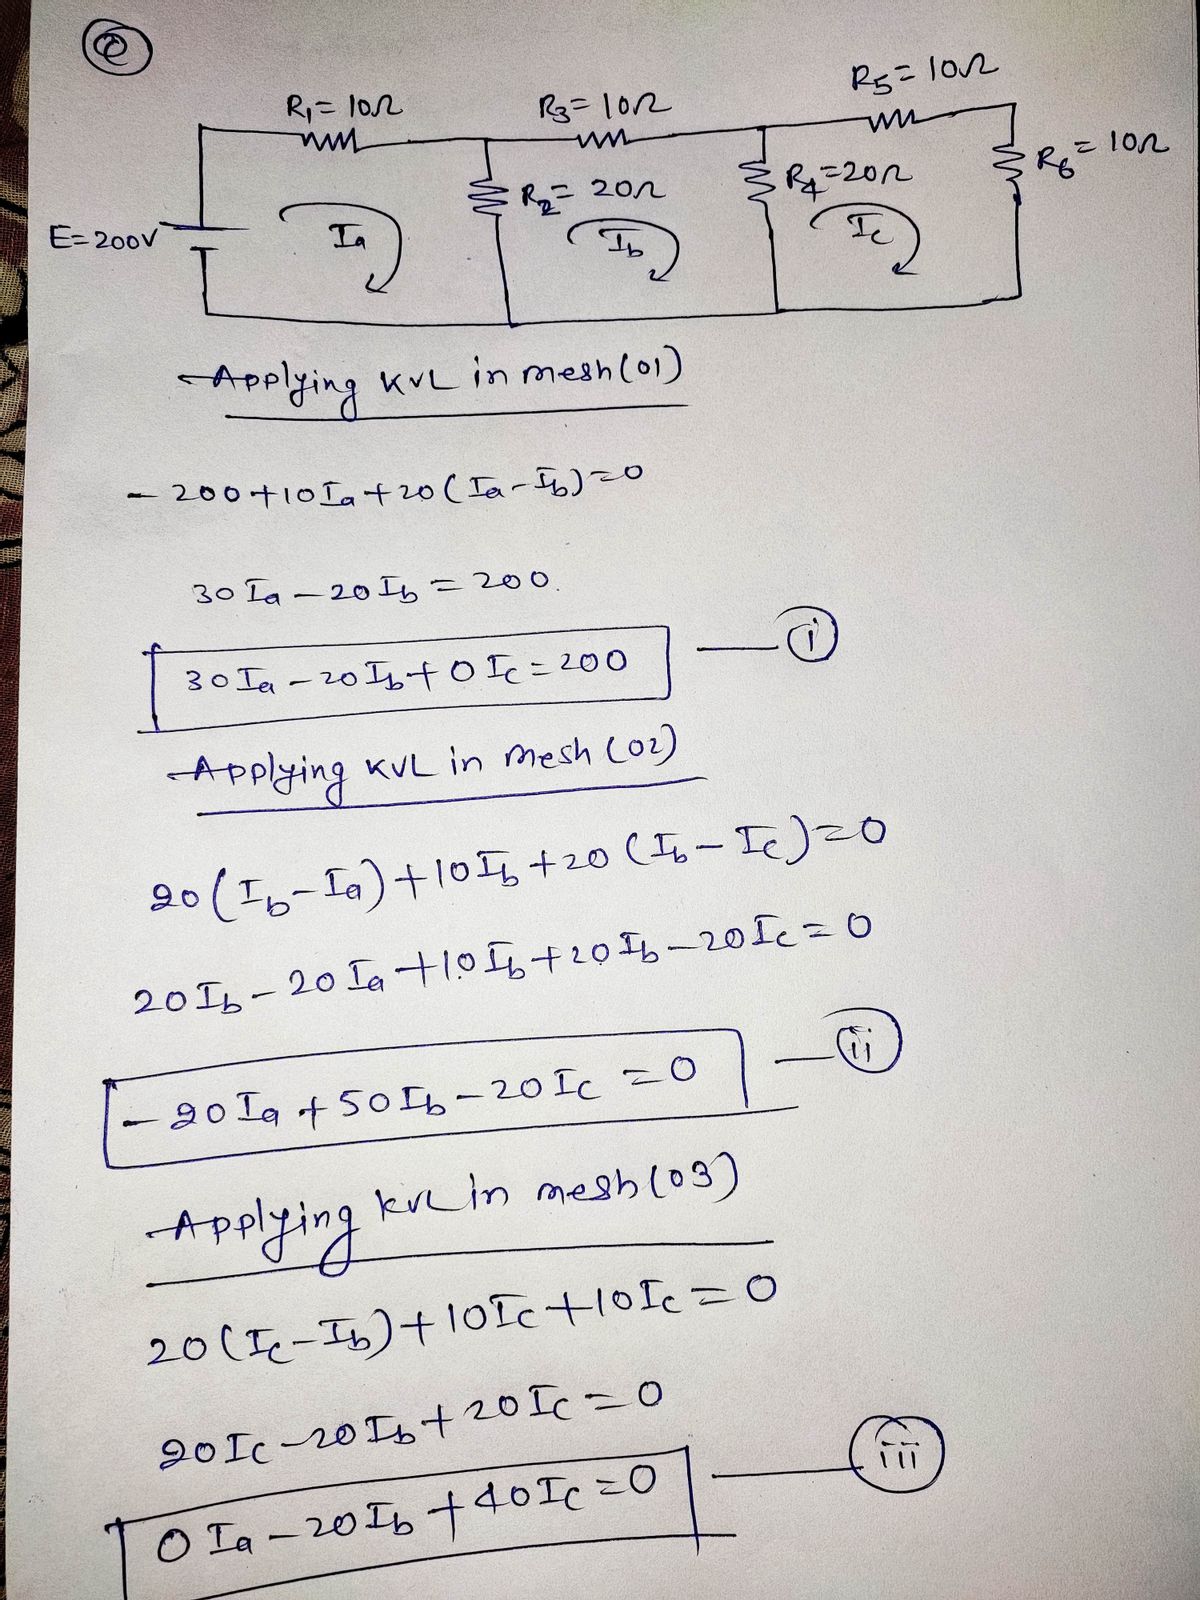 ②
R5=10Ω
R1=10Ω R3=10Ω
R2=20Ω R4=20Ω R6=10Ω
E=200V Ia Ib Ic
Applying KVL in mesh(01)
-200+10Ia+20(Ia-Ib)=0
30Ia-20Ib=200.
30Ia-20Ib+0Ic=200 — i
Applying KVL in mesh (02)
20(Ib-Ia)+10Ib+20(Ib-Ic)=0
20Ib-20Ia+10Ib+20Ib-20Ic=0
-20Ia+50Ib-20Ic=0 — ii
Applying kvl in mesh(03)
20(Ic-Ib)+10Ic+10Ic=0
20Ic-20Ib+20Ic=0
0Ia-20Ib+40Ic=0 — iii